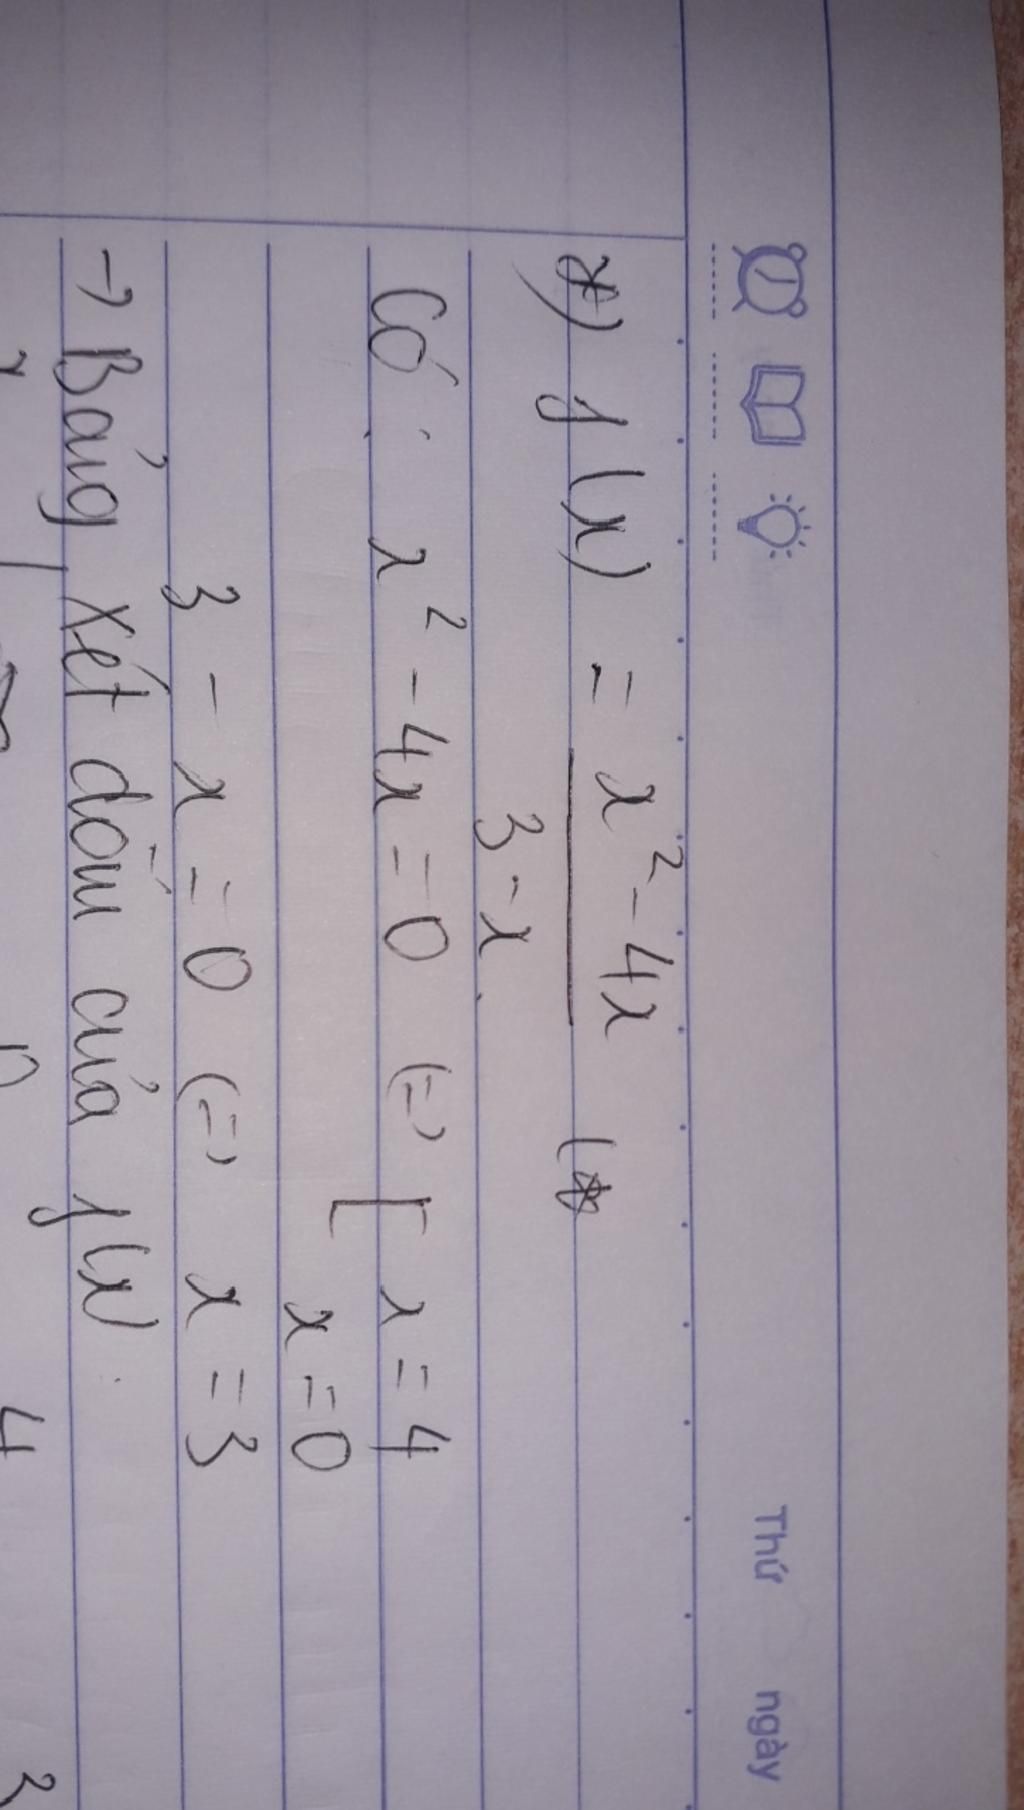 Thứ ngày
*) f(x) = x² - 4x / 3 - x (*
Có : x² - 4x = 0 (=) [ x = 4
x = 0
3 - x = 0 (=) x = 3
→ Bảng xét dấu của f(x) :
4 3